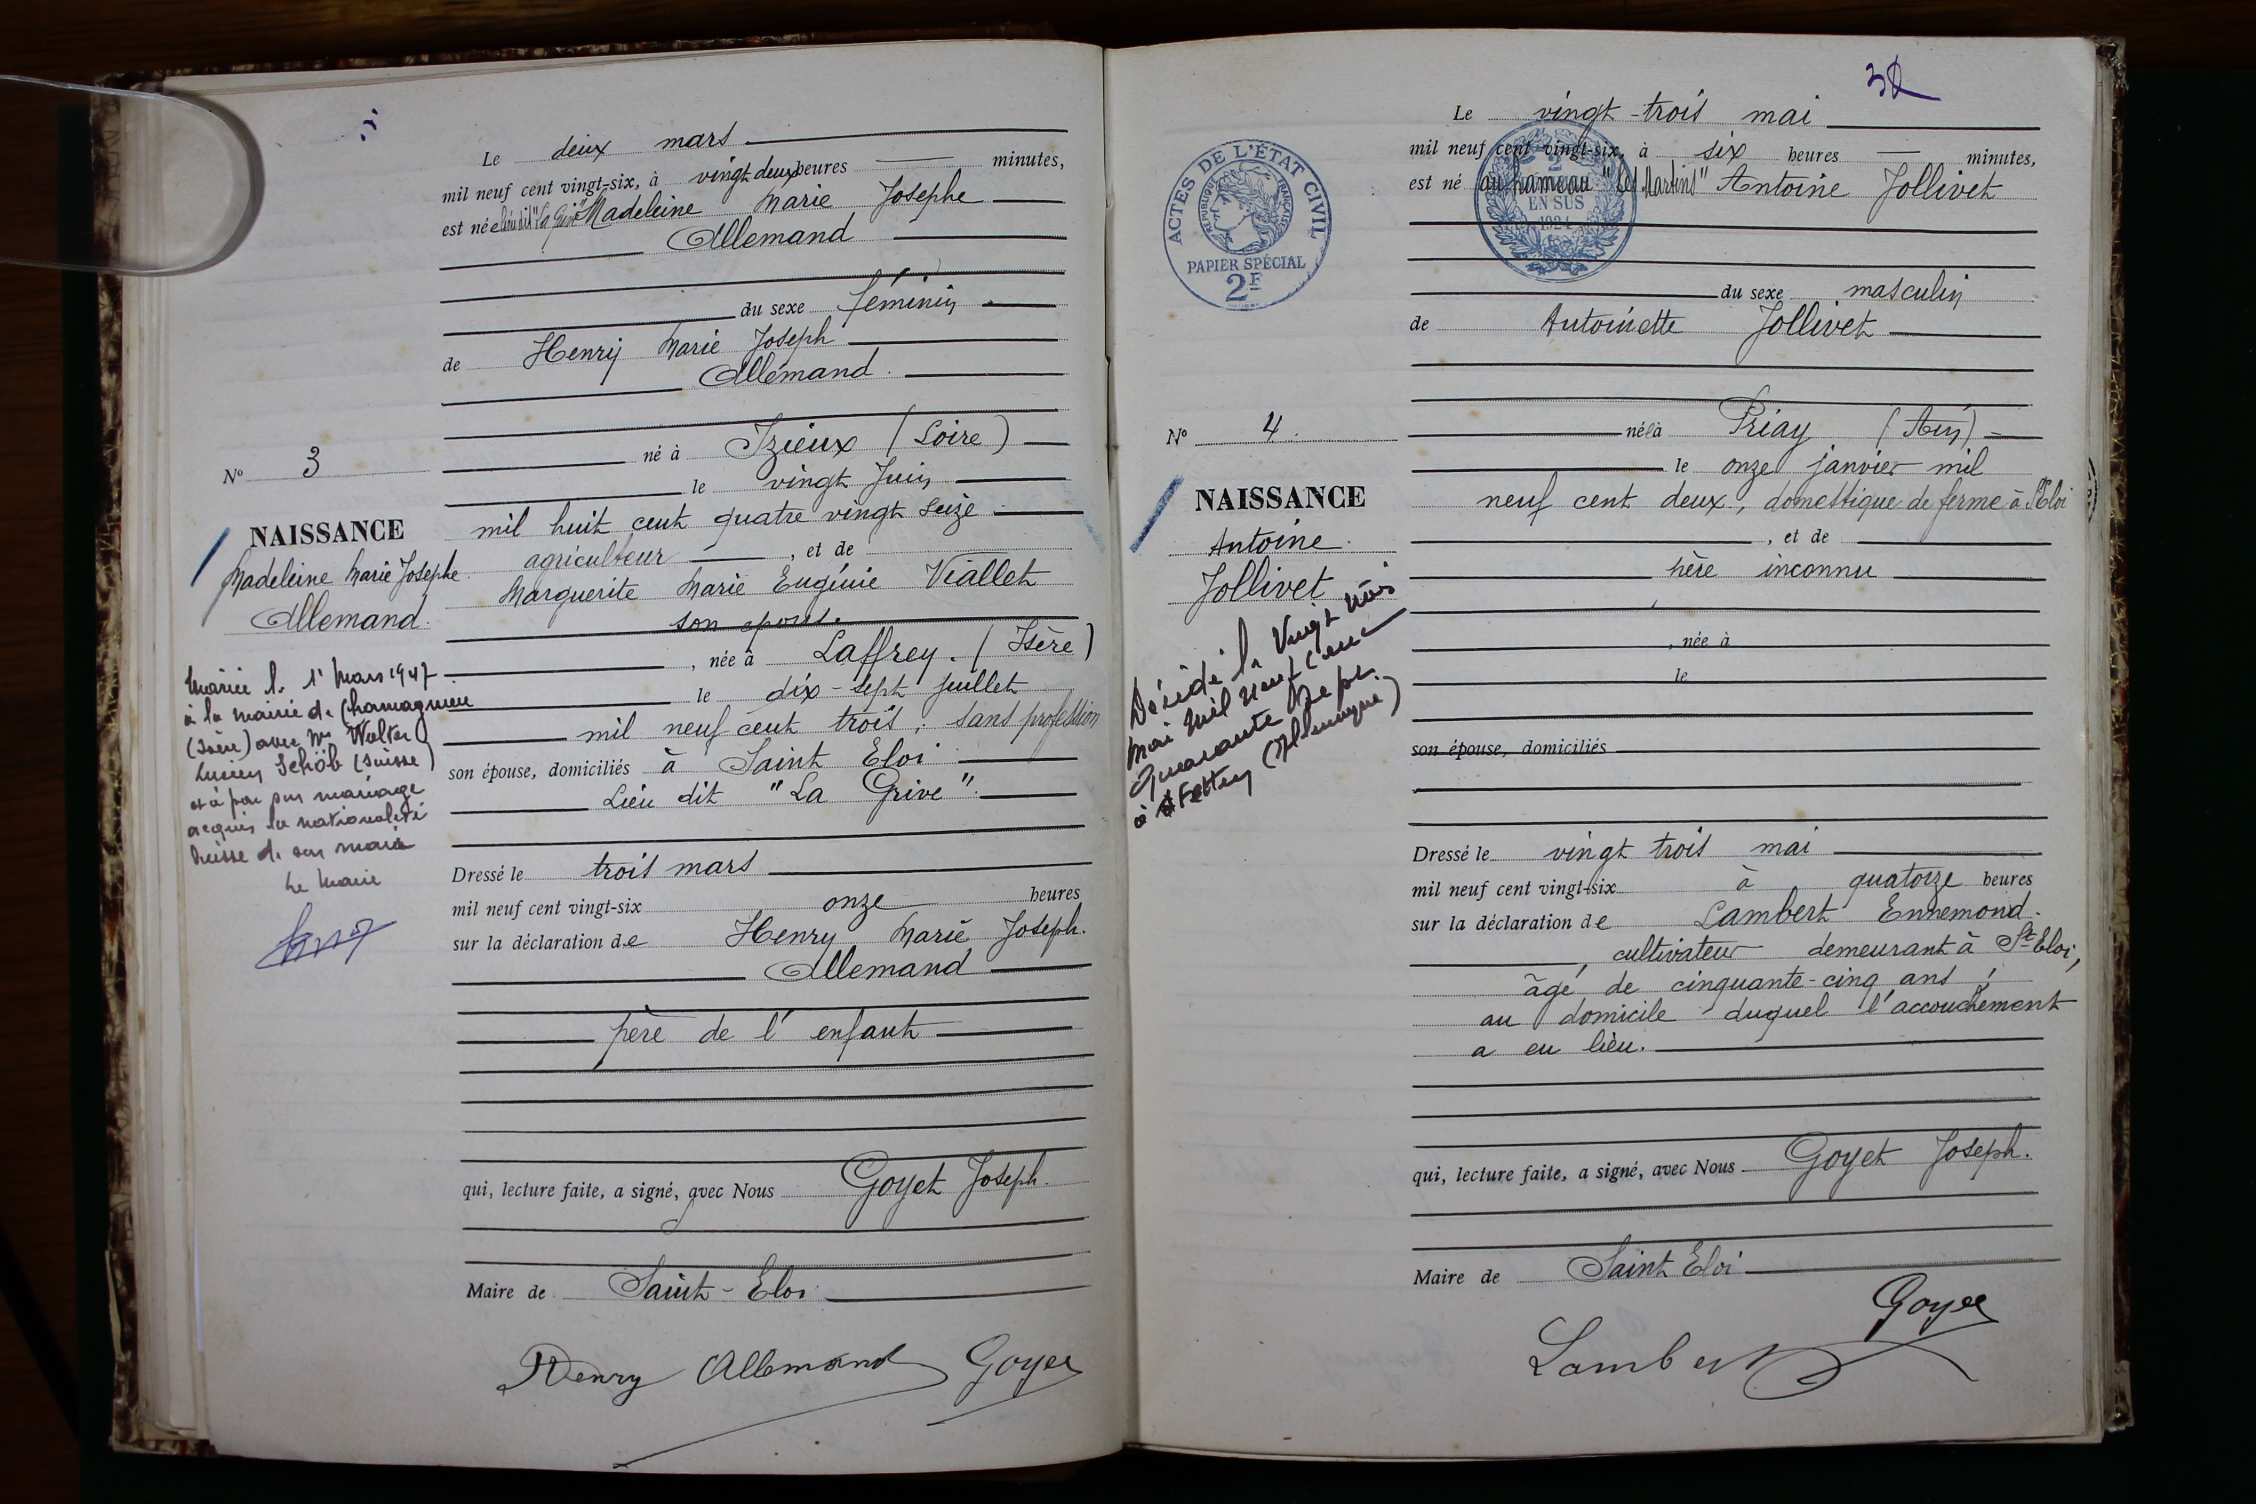 Le deux mars
mil neuf cent vingt-six, à vingt deux heures minutes,
est née lieu dit "La Grive" Madeleine Marie Josephe
Allemand
du sexe féminin
de Henry Marie Joseph
Allemand
né à Izieux (Loire)
le vingt Juin
mil huit cent quatre vingt seize
agriculteur, et de
Marguerite Marie Eugénie Viallet
son épouse
, née à Laffrey. (Isère)
le dix-sept juillet
mil neuf cent trois, sans profession
son épouse, domiciliés à Saint Eloi
Lieu dit "La Grive".
Dressé le trois mars
mil neuf cent vingt-six onze heures
sur la déclaration de Henry Marie Joseph.
Allemand
père de l'enfant
qui, lecture faite, a signé, avec Nous Goyet Joseph.
Maire de Saint-Eloi
Henry Allemand Goyet
No 3
NAISSANCE
Madeleine Marie Josephe
Allemand.
Mariée le 1r Mars 1947
à la mairie de Chamagnieu
(Isère) avec Mr Walter
Lucien Schöb (Suisse)
et a par son mariage
acquis la nationalité
Suisse de son mari
Le Maire
32
Le vingt-trois mai
mil neuf cent vingt-six, à six heures minutes,
est né au hameau "Les Martins" Antoine Jollivet
du sexe masculin
de Antoinette Jollivet
née à Priay (Ain)
le onze janvier mil
neuf cent deux, domestique de ferme à St Eloi
, et de
père inconnu
, née à
le
son épouse, domiciliés
Dressé le vingt trois mai
mil neuf cent vingt-six à quatorze heures
sur la déclaration de Lambert Ennemond.
, cultivateur demeurant à St Eloi,
âgé de cinquante-cinq ans,
au domicile duquel l'accouchement
a eu lieu.
qui, lecture faite, a signé, avec Nous Goyet Joseph.
Maire de Saint Eloi
Goyet
Lambert
ACTES DE L'ÉTAT CIVIL
RÉPUBLIQUE FRANÇAISE
PAPIER SPÉCIAL
2F
2
EN SUS
1924
No 4.
NAISSANCE
Antoine
Jollivet
Décédé le Vingt trois
mai mil neuf cent
quarante
à Stettin (Allemagne)